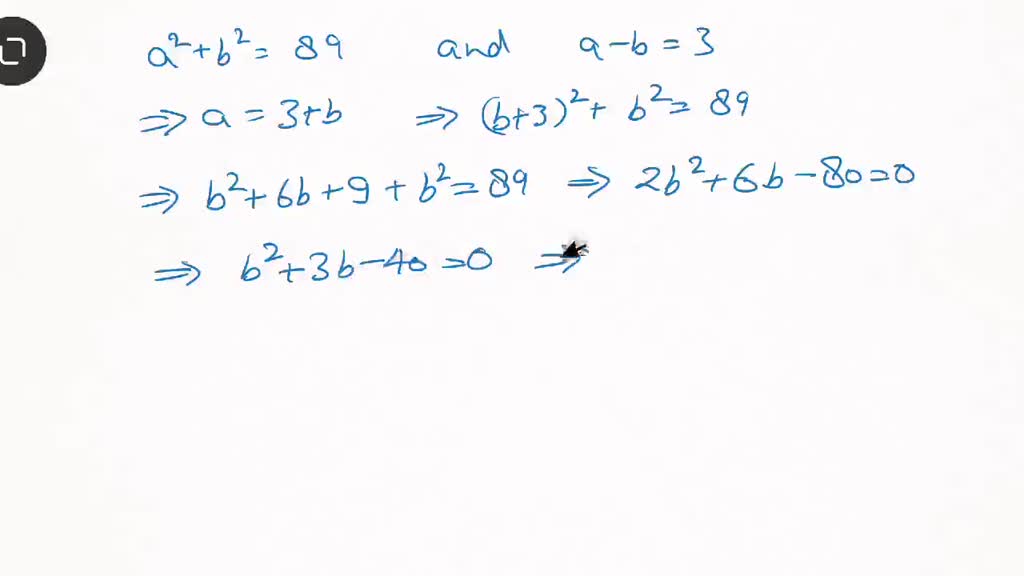 a²+b²= 89 and a-b = 3
⇒ a = 3+b ⇒ (b+3)²+ b²= 89
⇒ b²+6b+9+b²=89 ⇒ 2b²+6b-80=0
⇒ b²+3b-40=0 ⇒